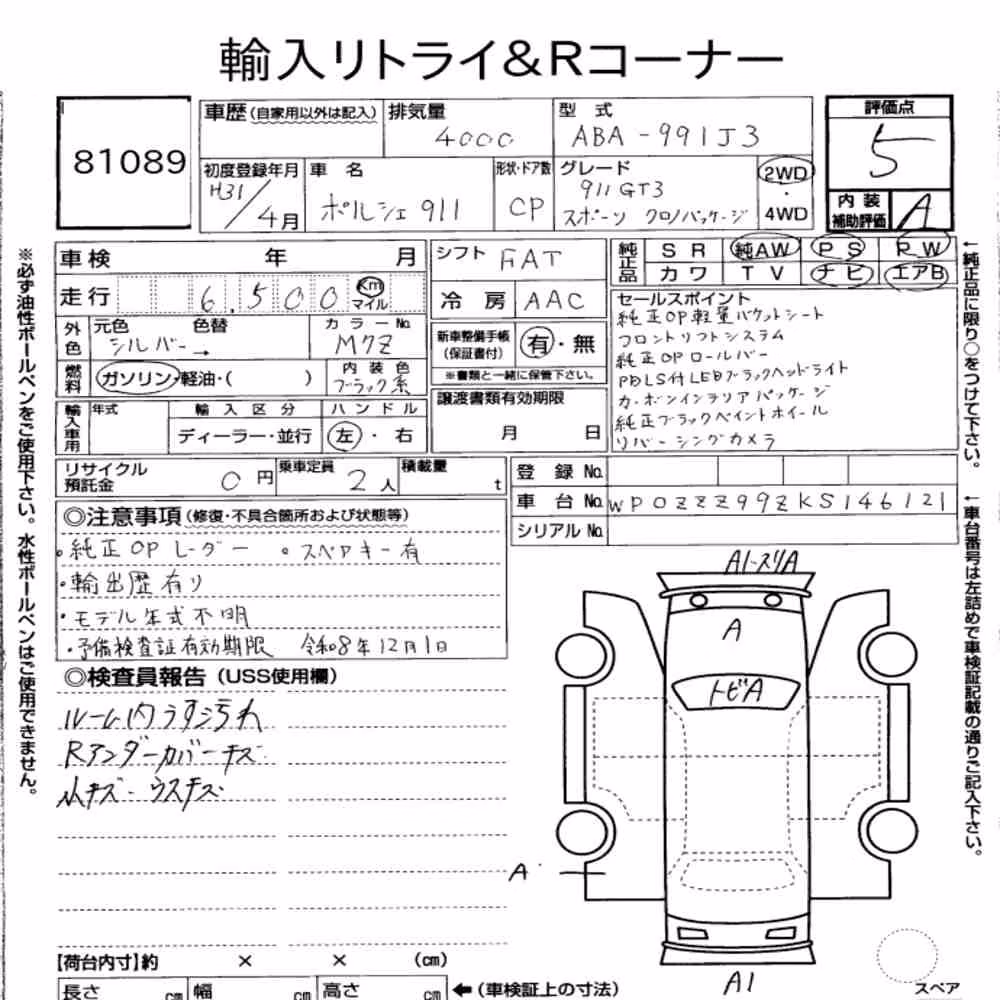 輸入リトライ&Rコーナー
81089
車歴(自家用以外は記入)
排気量
4000
型式
ABA-991J3
評価点
5
初度登録年月
H31/4月
車名
ポルシェ 911
形状・ドア数
CP
グレード
911 GT3
スポーツ クロノパッケージ
2WD
・
4WD
内装
補助評価
A
車検 年 月
シフト
FAT
純正品
SR 純AW PS PW
カワ TV ナビ エアB
走行 6,500 Km
マイル
冷房 AAC
セールスポイント
純正OP軽量バケットシート
フロントリフトシステム
純正OPロールバー
PDLS付LEDブラックヘッドライト
カーボンインテリアパッケージ
純正ブラックペイントホイール
リバーシングカメラ
外色
元色 色替
シルバー→
カラーNo.
M7Z
新車整備手帳
(保証書付)
有・無
※書類と一緒に保管下さい。
燃料
ガソリン・軽油・( )
内装色
ブラック系
譲渡書類有効期限
月 日
輸入車用
年式
輸入区分
ディーラー・並行
ハンドル
左・右
リサイクル
預託金
0円
乗車定員
2人
積載量
t
登録No.
車台No. WP0ZZZ99ZKS146121
シリアルNo.
◎注意事項(修復・不具合箇所および状態等)
・純正OPレーダー ・スペアキー有
・輸出歴有り
・モデル年式不明
・予備検査証有効期限 令和8年12月1日
◎検査員報告(USS使用欄)
ルーム内うすい汚れ
Rアンダーカバーキズ
小キズ・ウスキズ
A1・スリA
A
トビA
A
A1
スペア
【荷台内寸】約 × × (cm)
長さ cm 幅 cm 高さ cm ←(車検証上の寸法)
※必ず油性ボールペンをご使用下さい。水性ボールペンはご使用できません。
←純正品に限り○をつけて下さい。
←車台番号は左詰めで車検証記載の通りご記入下さい。